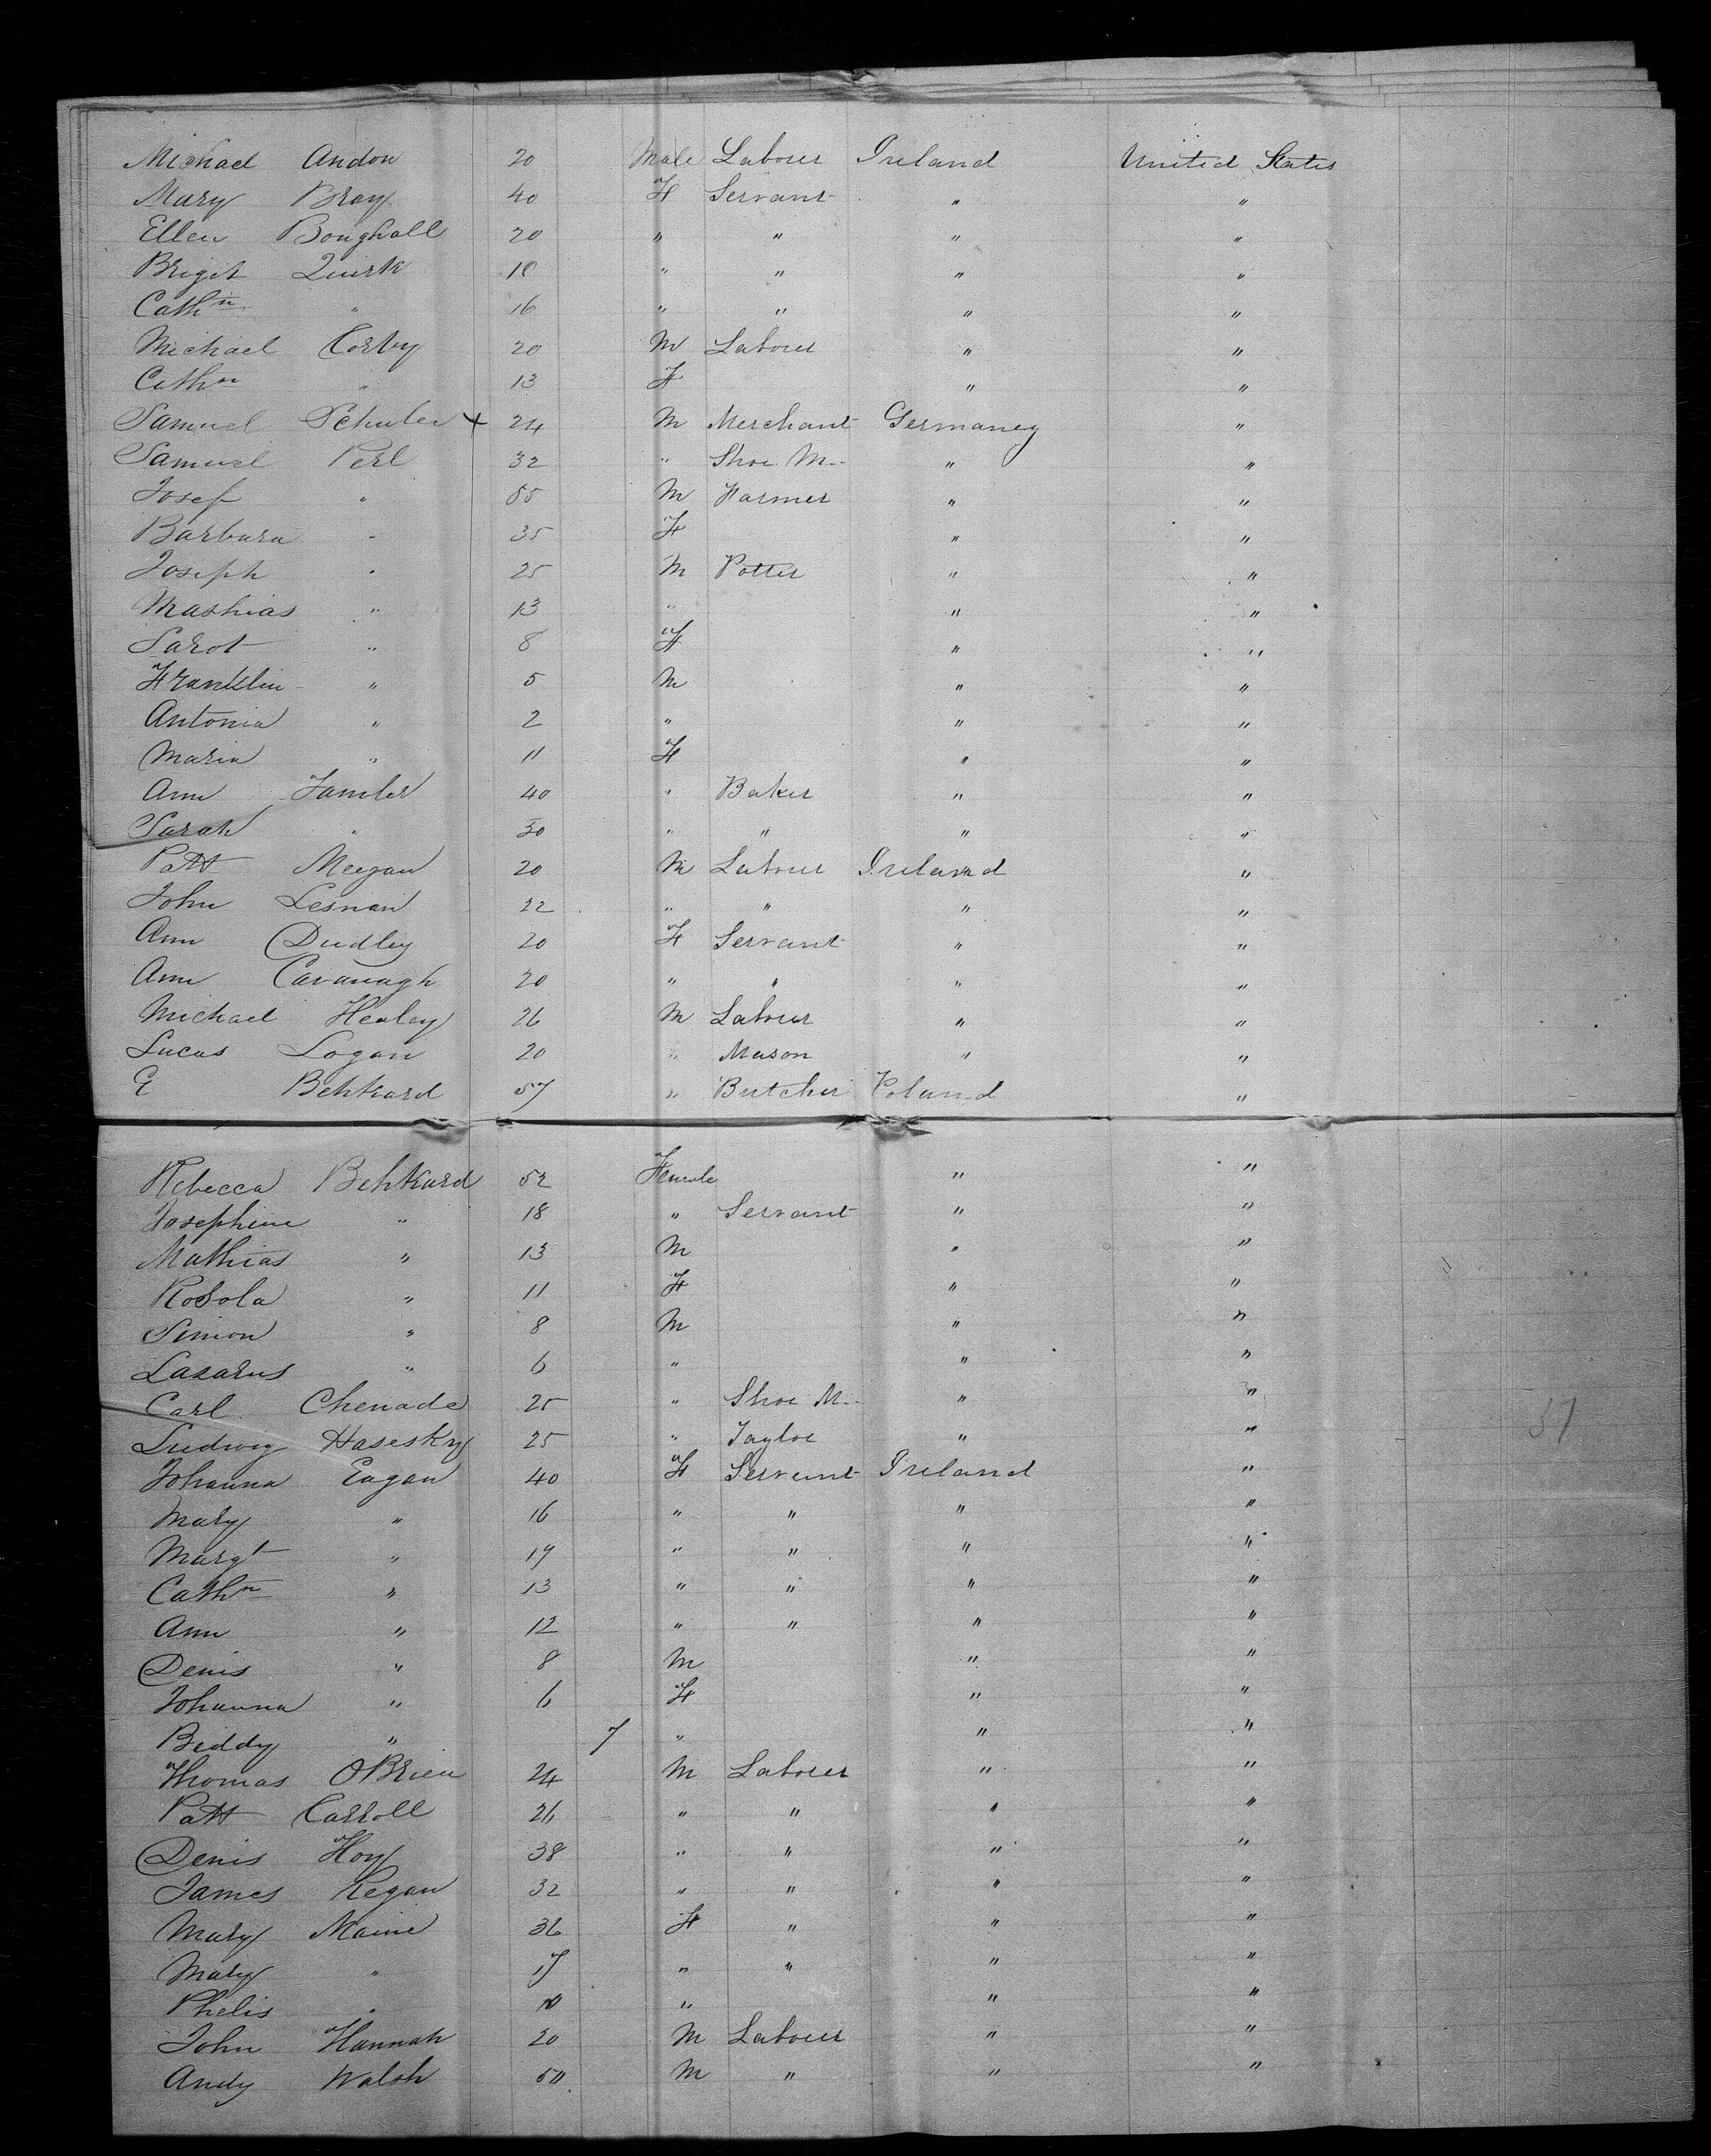 Michael Andon 20 Male Laborer Ireland United States
Mary Bray 40 F Servant " "
Ellen Boughall 20 " " " "
Brigit Quirk 18 " " " "
Cathn " 16 " " " "
Michael Corby 20 M Laborer " "
Cathn " 13 F " "
Samuel Schuler x 24 M Merchant Germaney "
Samuel Perl 32 " Shoe M-- " "
Josef " 55 M Farmer " "
Barbara " 35 F " "
Joseph " 25 M Potter " "
Mashias " 13 " " "
Sarot " 8 F " "
Franklin " 5 M " "
Antonia " 2 " " "
Maria " 11 F " "
Ann 40 " Baker " "
Sarah " 30 " " " "
Patt Meegan 20 M Laborer Ireland "
John Lesnan 22 " " " "
Ann Dudley 20 F Servant " "
Ann Cavanagh 20 " " " "
Michael Healey 26 M Laborer " "
Lucas Logan 20 " Mason " "
E Behkard 57 " Butcher Poland "
Rebecca Behkard 52 Female " "
Josephine " 18 " Servant " "
Mathias " 13 M " "
Rosola " 11 F " "
Simon " 8 M " "
Lazarus " 6 " " "
Carl Chenade 25 " Shoe M-- " "
Ludwig Hasesky 25 " Taylor " "
Johanna Eagan 40 F Servant Ireland "
Mary " 16 " " " "
Margt " 19 " " " "
Cathn " 13 " " " "
Ann " 12 " " " "
Denis " 8 M " "
Johanna " 6 F " "
Biddy " 7 " " "
Thomas OBrien 24 M Laborer " "
Patt Carroll 26 " " " "
Denis Hoy 38 " " " "
James Regan 32 " " " "
Mary Maine 36 F " " "
Mary " 17 " " " "
Phelis " 10 " " "
John Hannah 20 M Laborer " "
Andy Walsh 50 M " " "